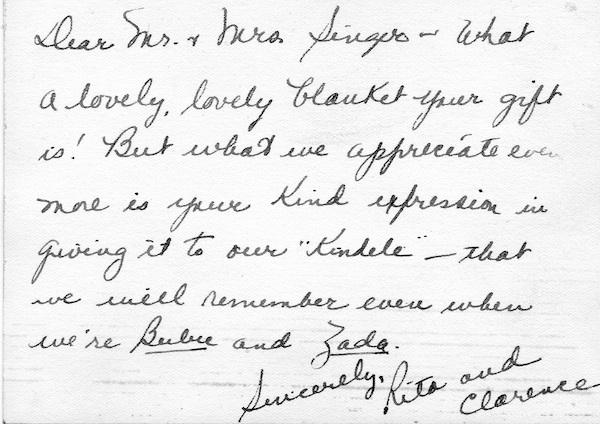 Dear Mr. & Mrs. Singer — What
a lovely, lovely blanket your gift
is! But what we appreciate even
more is your kind expression in
giving it to our "Kindele" — that
we will remember even when
we're Bubie and Zada.
Sincerely,
Rita and
Clarence